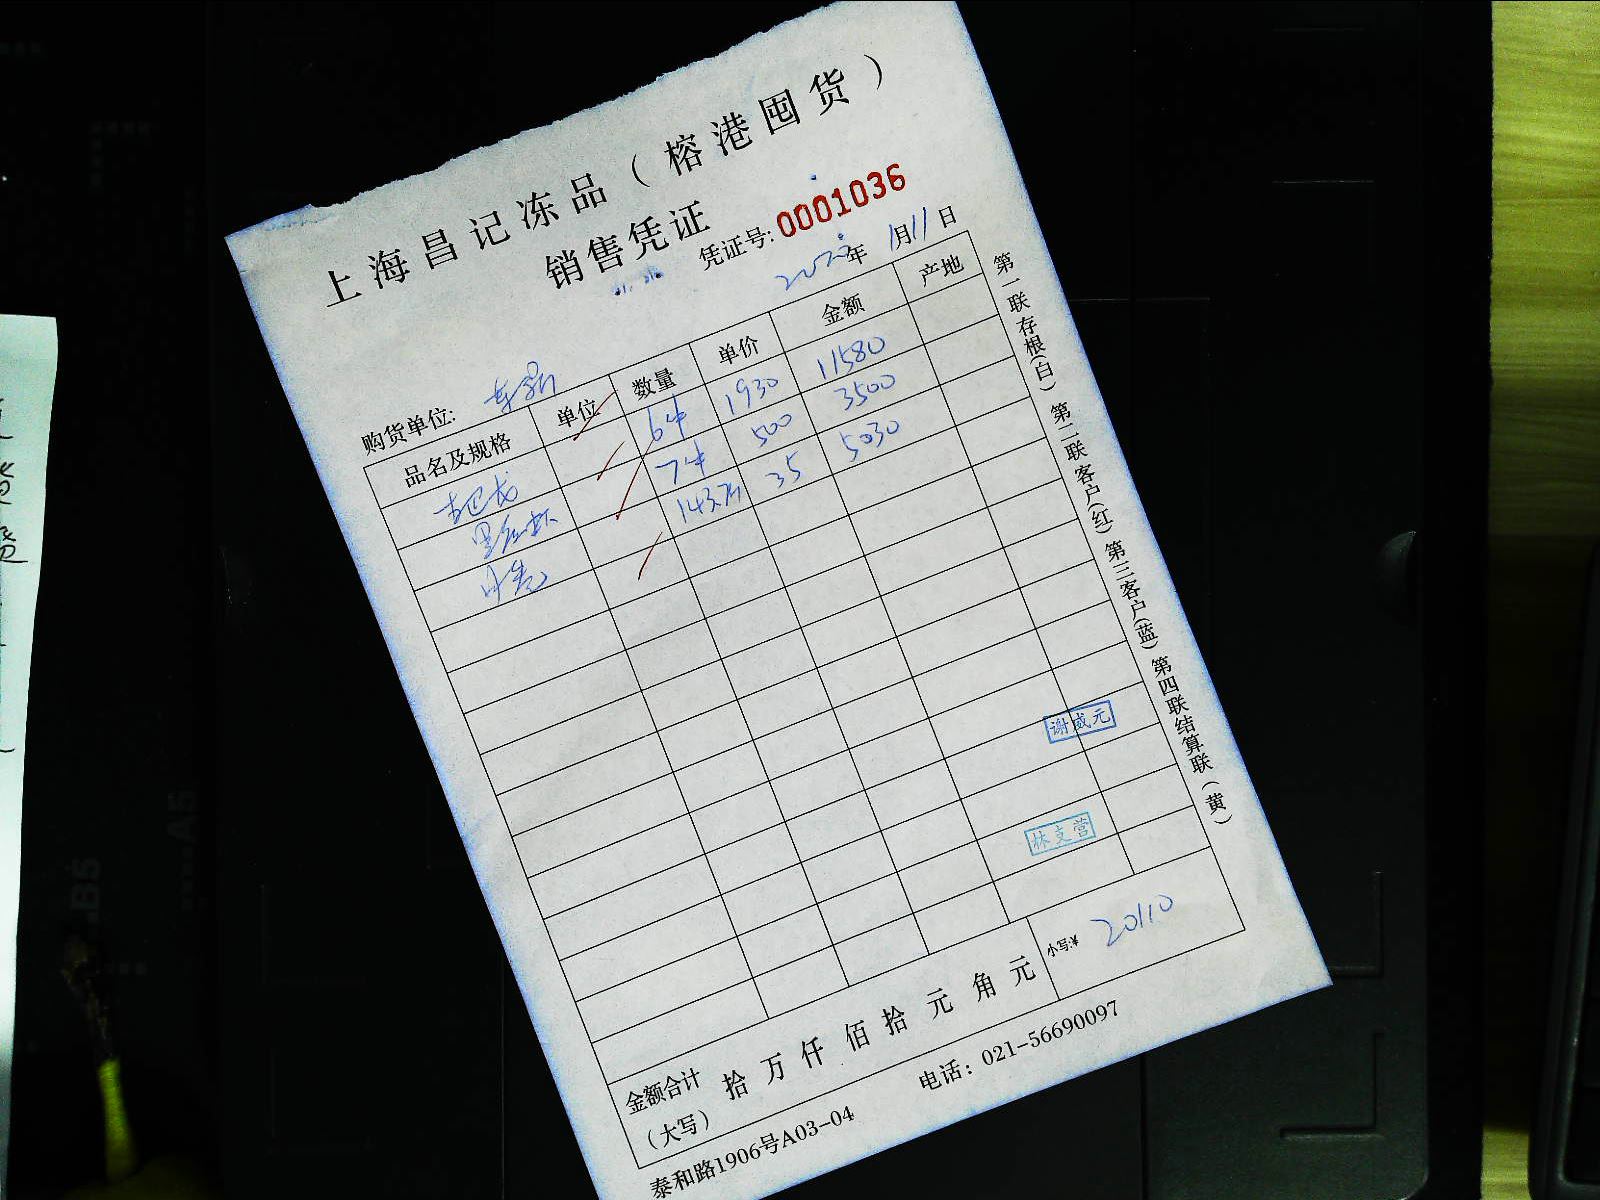 上海昌记冻品（榕港囤货）
销售凭证
凭证号: 0001036
2020年 1月11日
购货单位:
品名及规格 单位 数量 单价 金额 产地
6件 1930 11580
7件 500 3500
143.7斤 35 5030
谢威元
林支营
金额合计（大写） 拾 万 仟 佰 拾 元 角 元 小写:¥ 20110
泰和路1906号A03-04 电话：021-56690097
第一联存根（白） 第二联客户（红） 第三客户（蓝） 第四联结算联（黄）
B5
A5